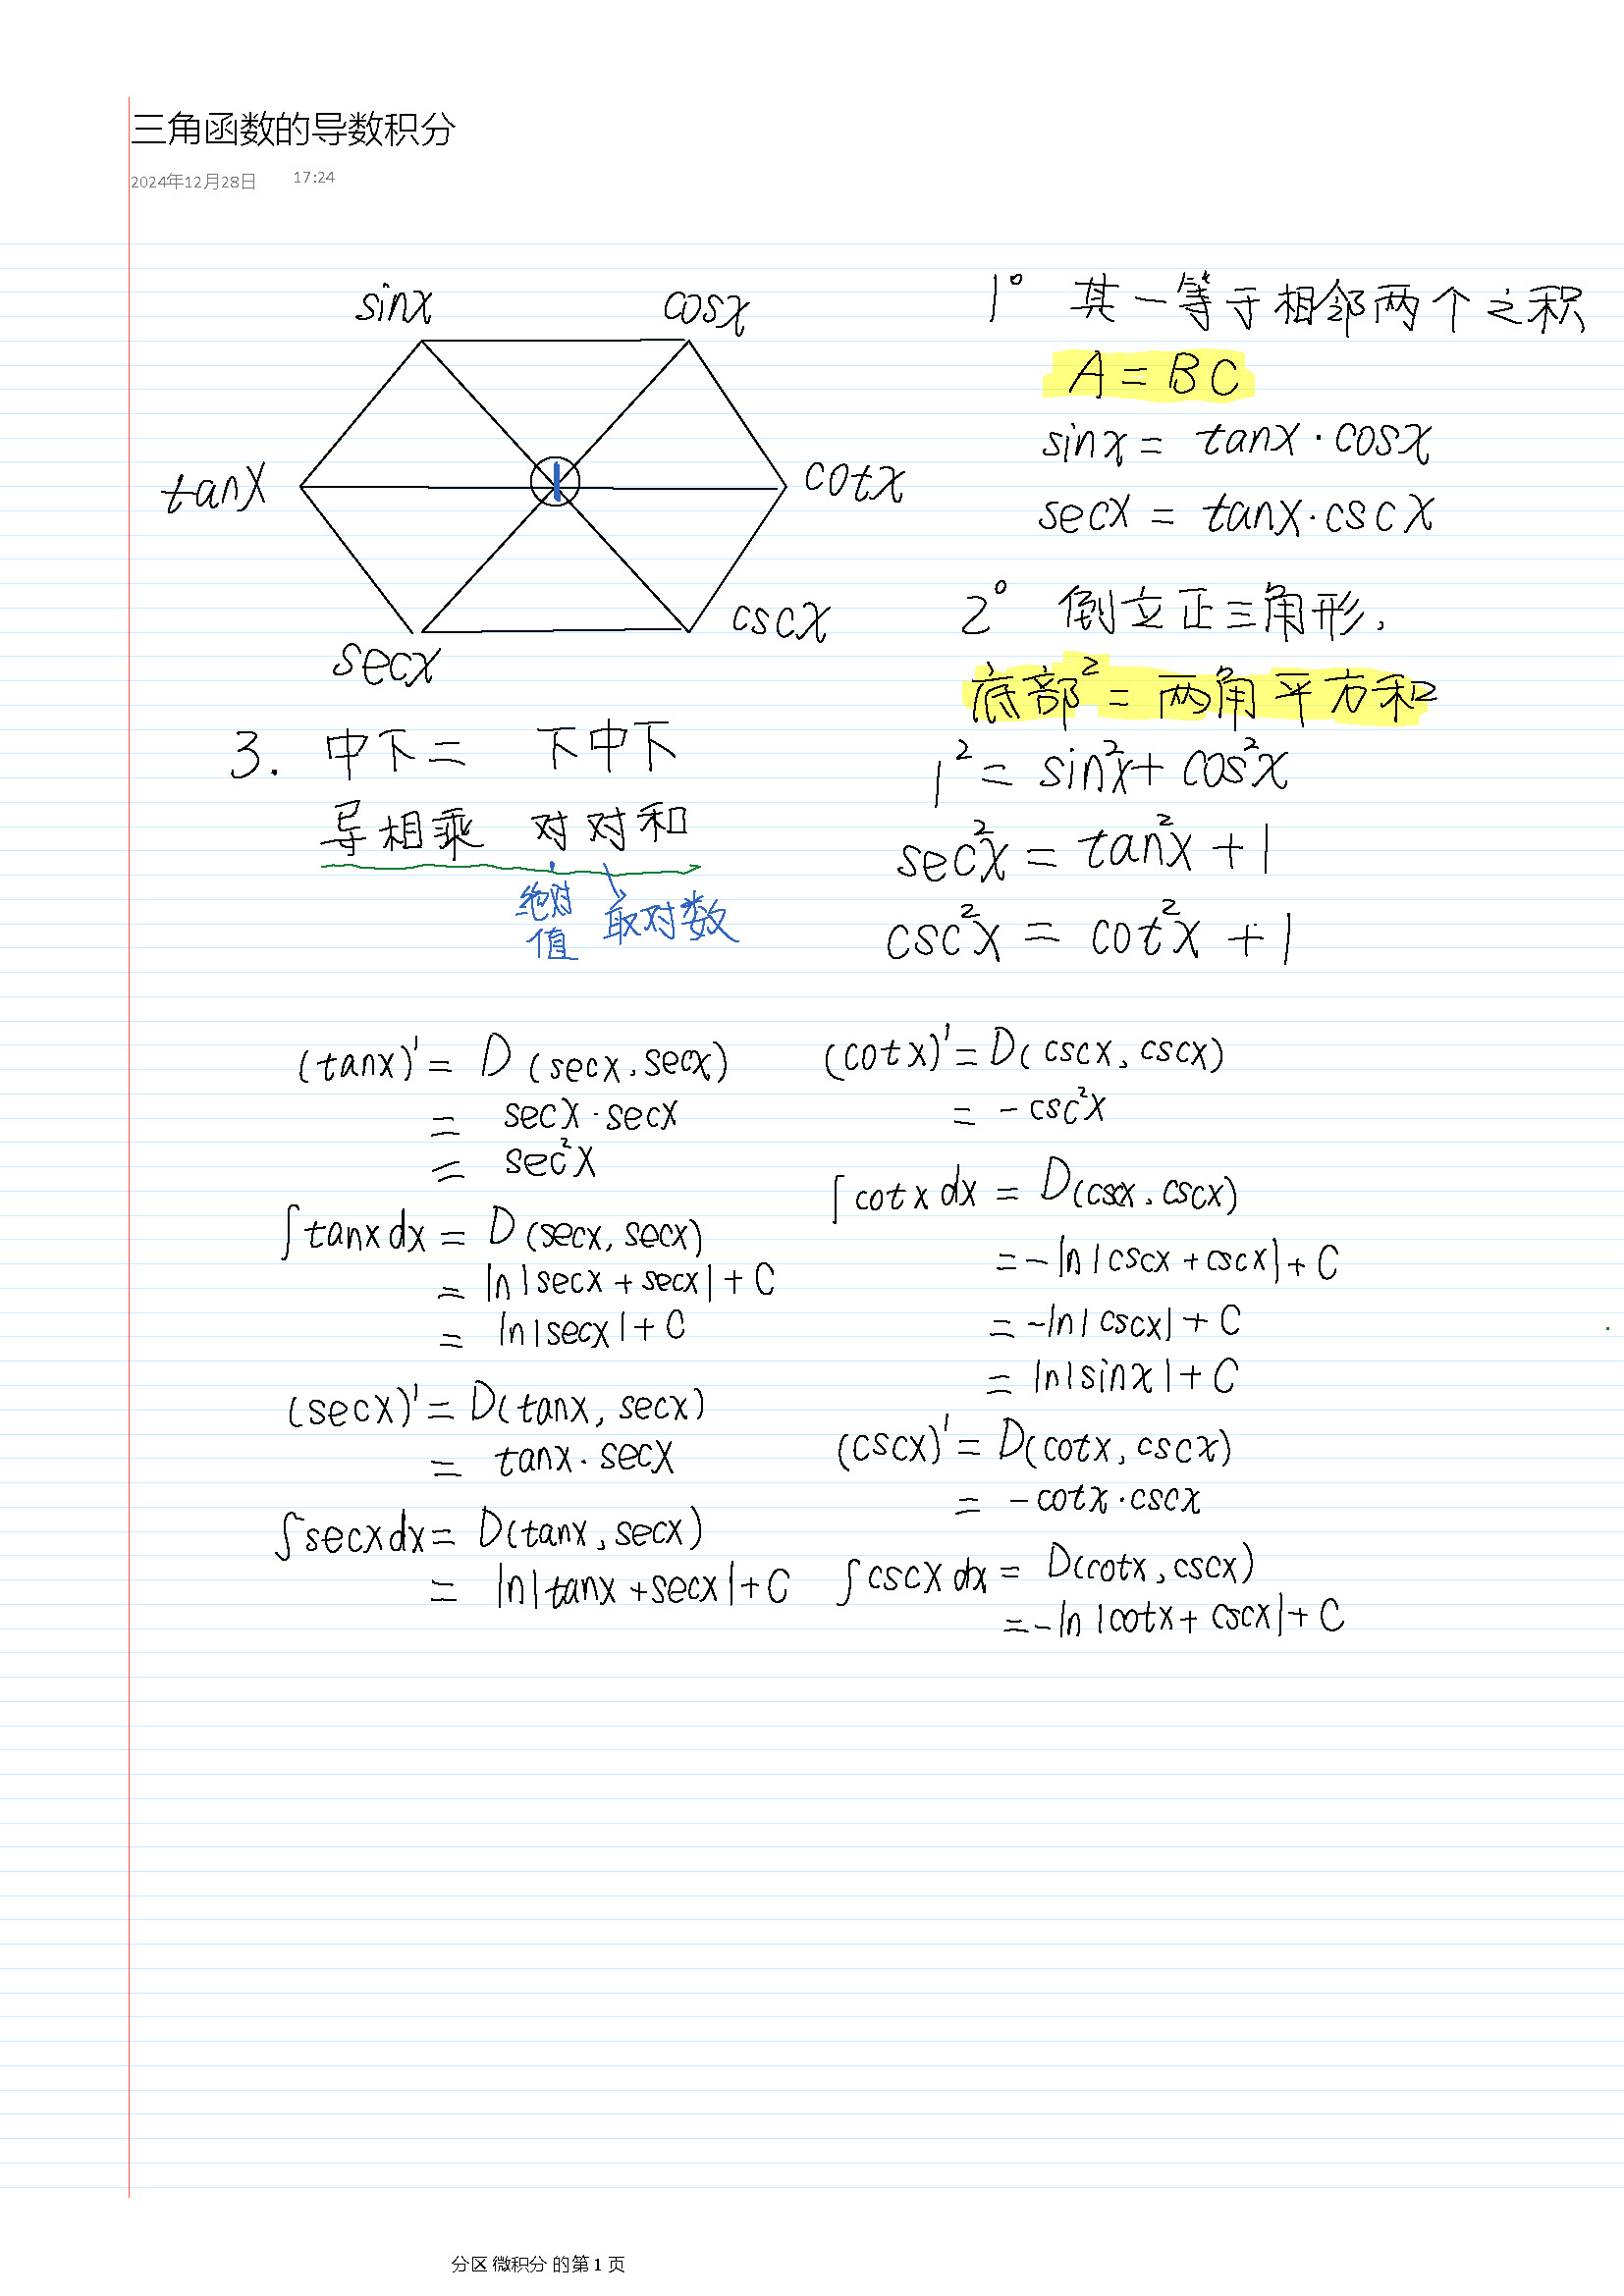 三角函数的导数积分
2024年12月28日 17:24
sinx cosx
tanx 1 cotx
secx cscx
1° 其一等于相邻两个之积
A = BC
sinx = tanx · cosx
secx = tanx · cscx
2° 倒立正三角形.
底部² = 两角平方和
1² = sin²x + cos²x
sec²x = tan²x + 1
csc²x = cot²x + 1
3. 中下二 下中下
导相乘 对对和
绝对值 取对数
(tanx)' = D (secx, secx)
= secx · secx
= sec²x
∫tanx dx = D (secx, secx)
= ln|secx + secx| + C
= ln|secx| + C
(secx)' = D(tanx, secx)
= tanx · secx
∫secxdx = D(tanx, secx)
= ln|tanx + secx| + C
(cotx)' = D( cscx, cscx)
= - csc²x
∫cotx dx = D(cscx, cscx)
= - ln|cscx + cscx| + C
= -ln|cscx| + C
= ln|sinx| + C
(cscx)' = D(cotx, cscx)
= - cotx · cscx
∫cscx dx = D(cotx, cscx)
= -ln|cotx + cscx| + C
分区 微积分 的第 1 页